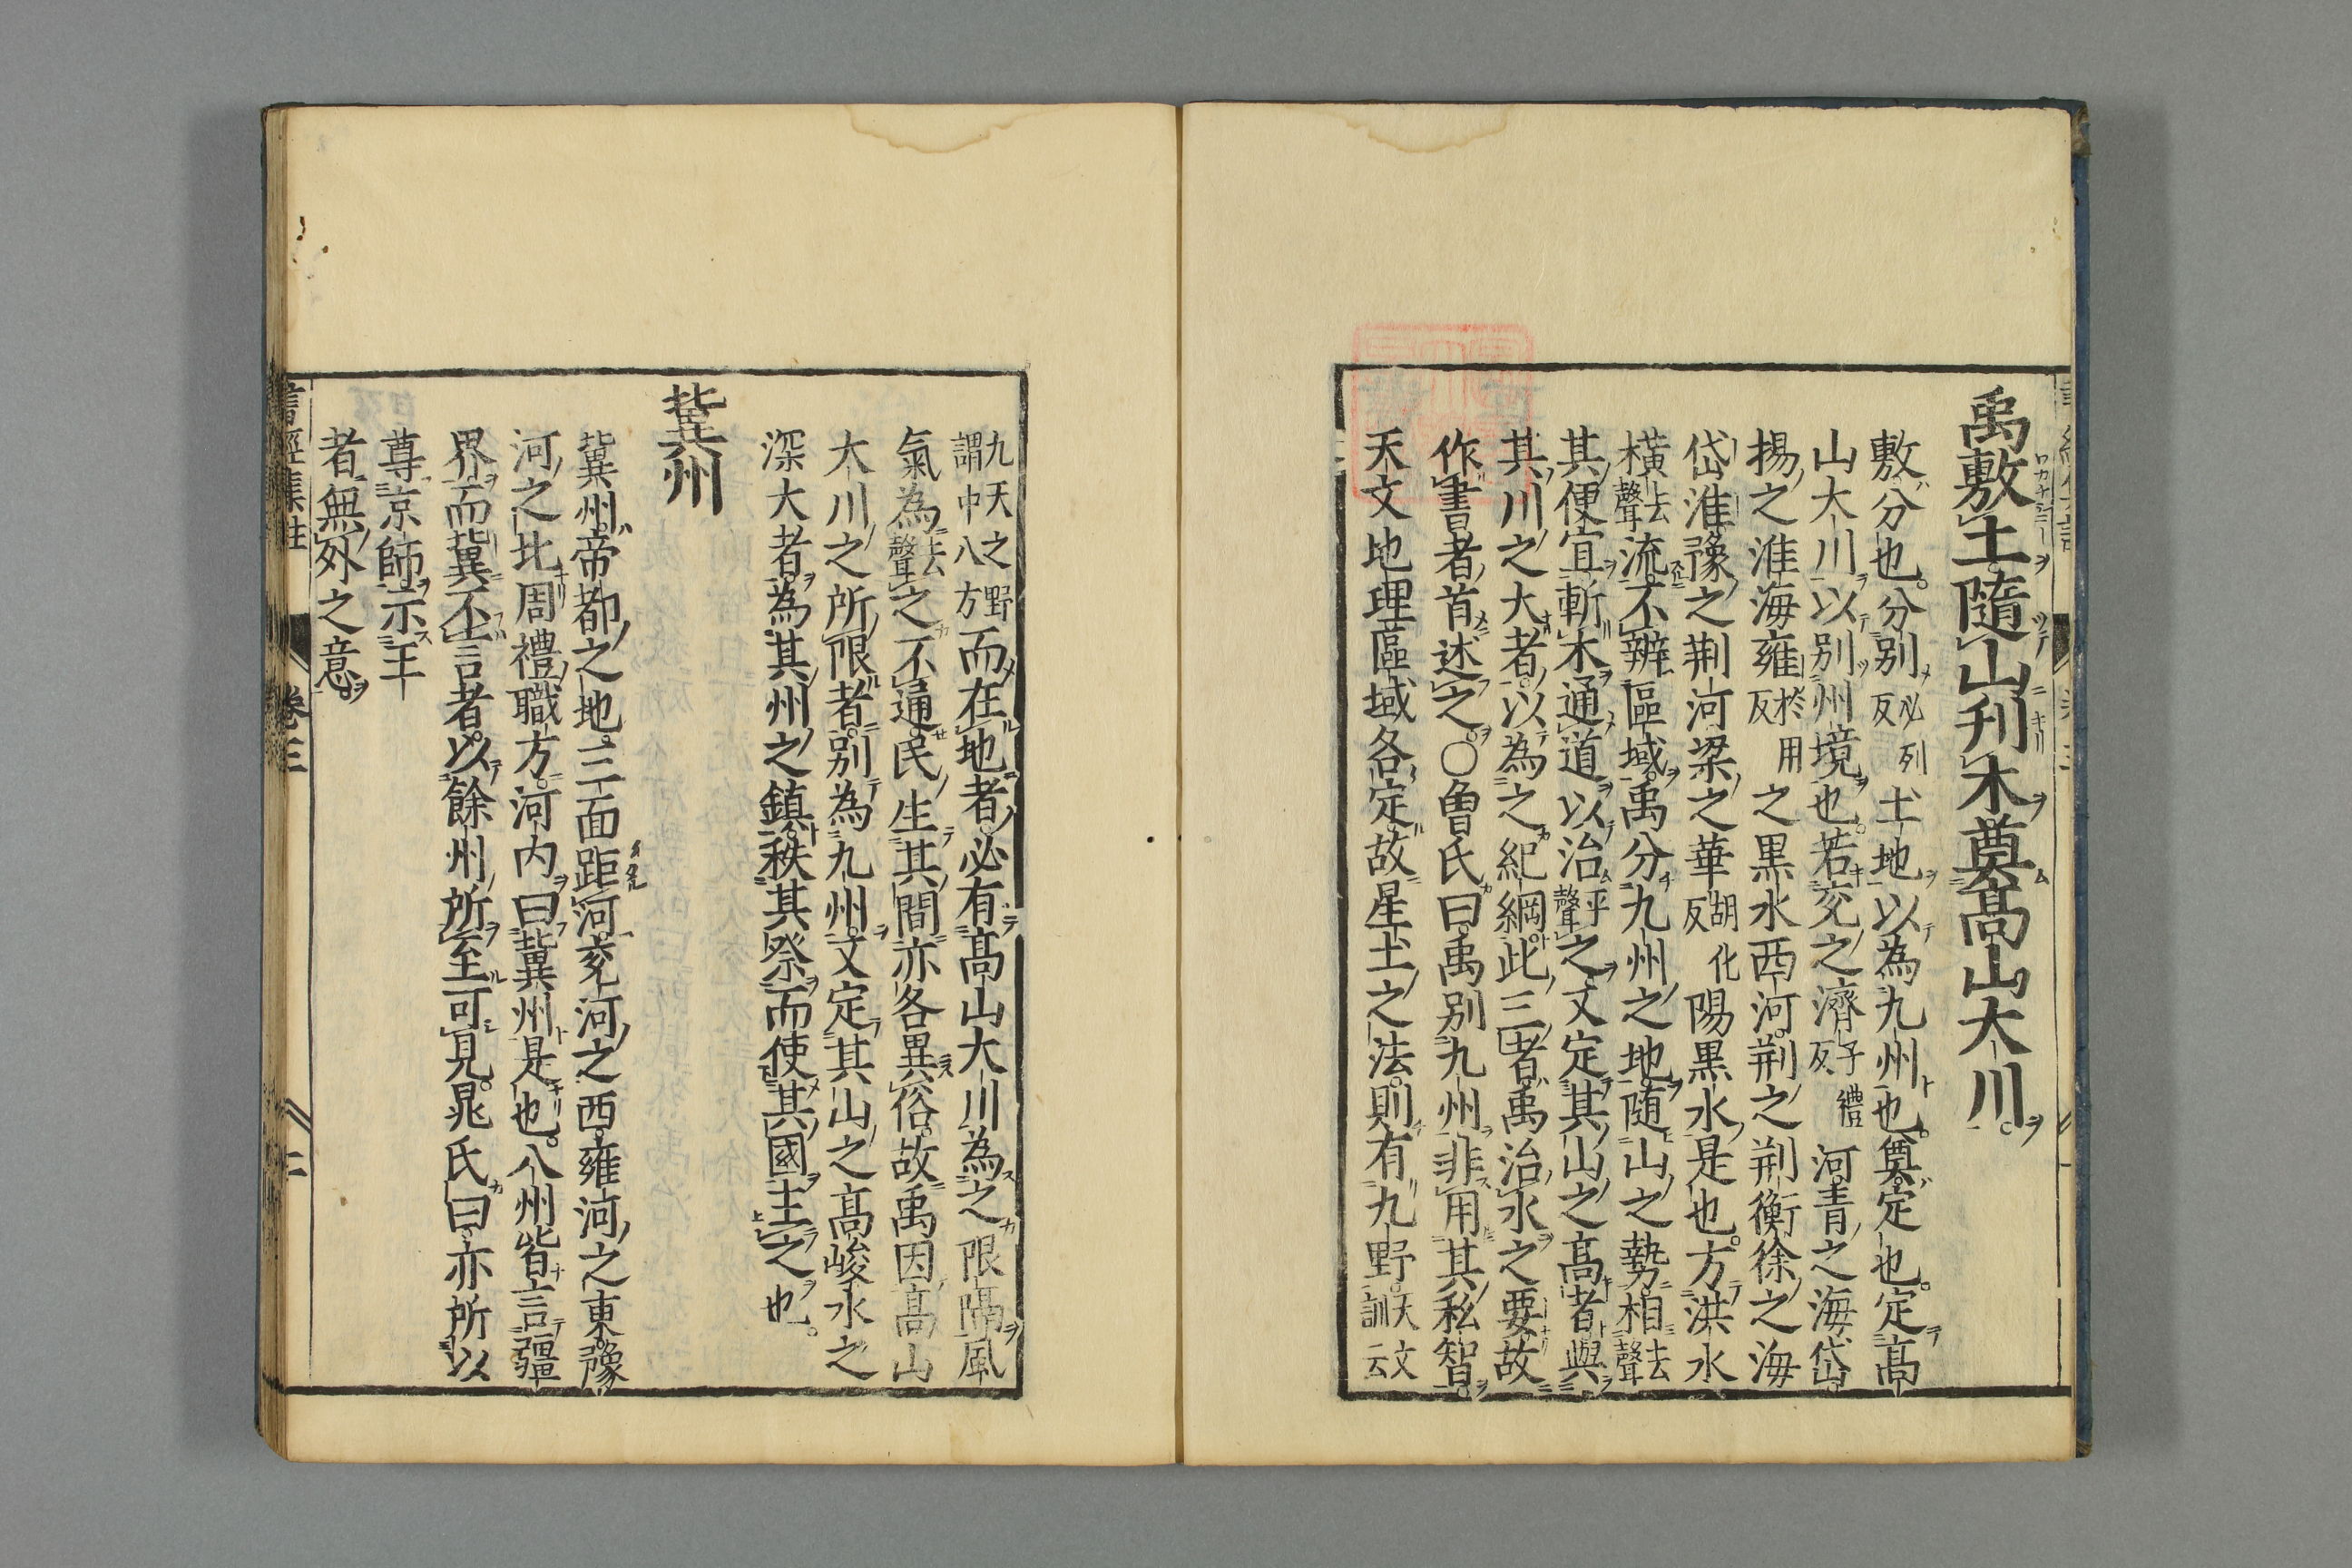 禹敷土隨山刋木奠高山大川
敷分也分別必列反土地以為九州也奠定也定高
山大川以別州境也若兖之濟子禮反河青之海岱
揚之淮海雍於用反之黒水西河荆之荆衡徐之海
岱淮豫之荆河梁之華胡化反陽黒水是也方洪水
橫去聲流不辨區域禹分九州之地隨山之勢相去聲
其便宜斬木通道以治平聲之又定其山之高者與
其川之大者以為之紀綱此三者禹治水之要故
作書者首述之○曾氏曰禹別九州非用其私智
天文地理區域各定故星土之法則有九野天文訓云
九天之野謂中八方而在地者必有高山大川為之限隔風
氣為去聲之不通民生其間亦各異俗故禹因高山
大川之所限者別為九州又定其山之高峻水之
深大者為其州之鎮秩其祭而使其國主之也
冀州
冀州帝都之地三面距河兖河之西雍河之東豫
河之北周禮職方河内曰冀州是也八州皆言疆
界而冀不言者以餘州所至可見晁氏曰亦所以
尊京師示王
者無外之意
書經集註 卷三 二